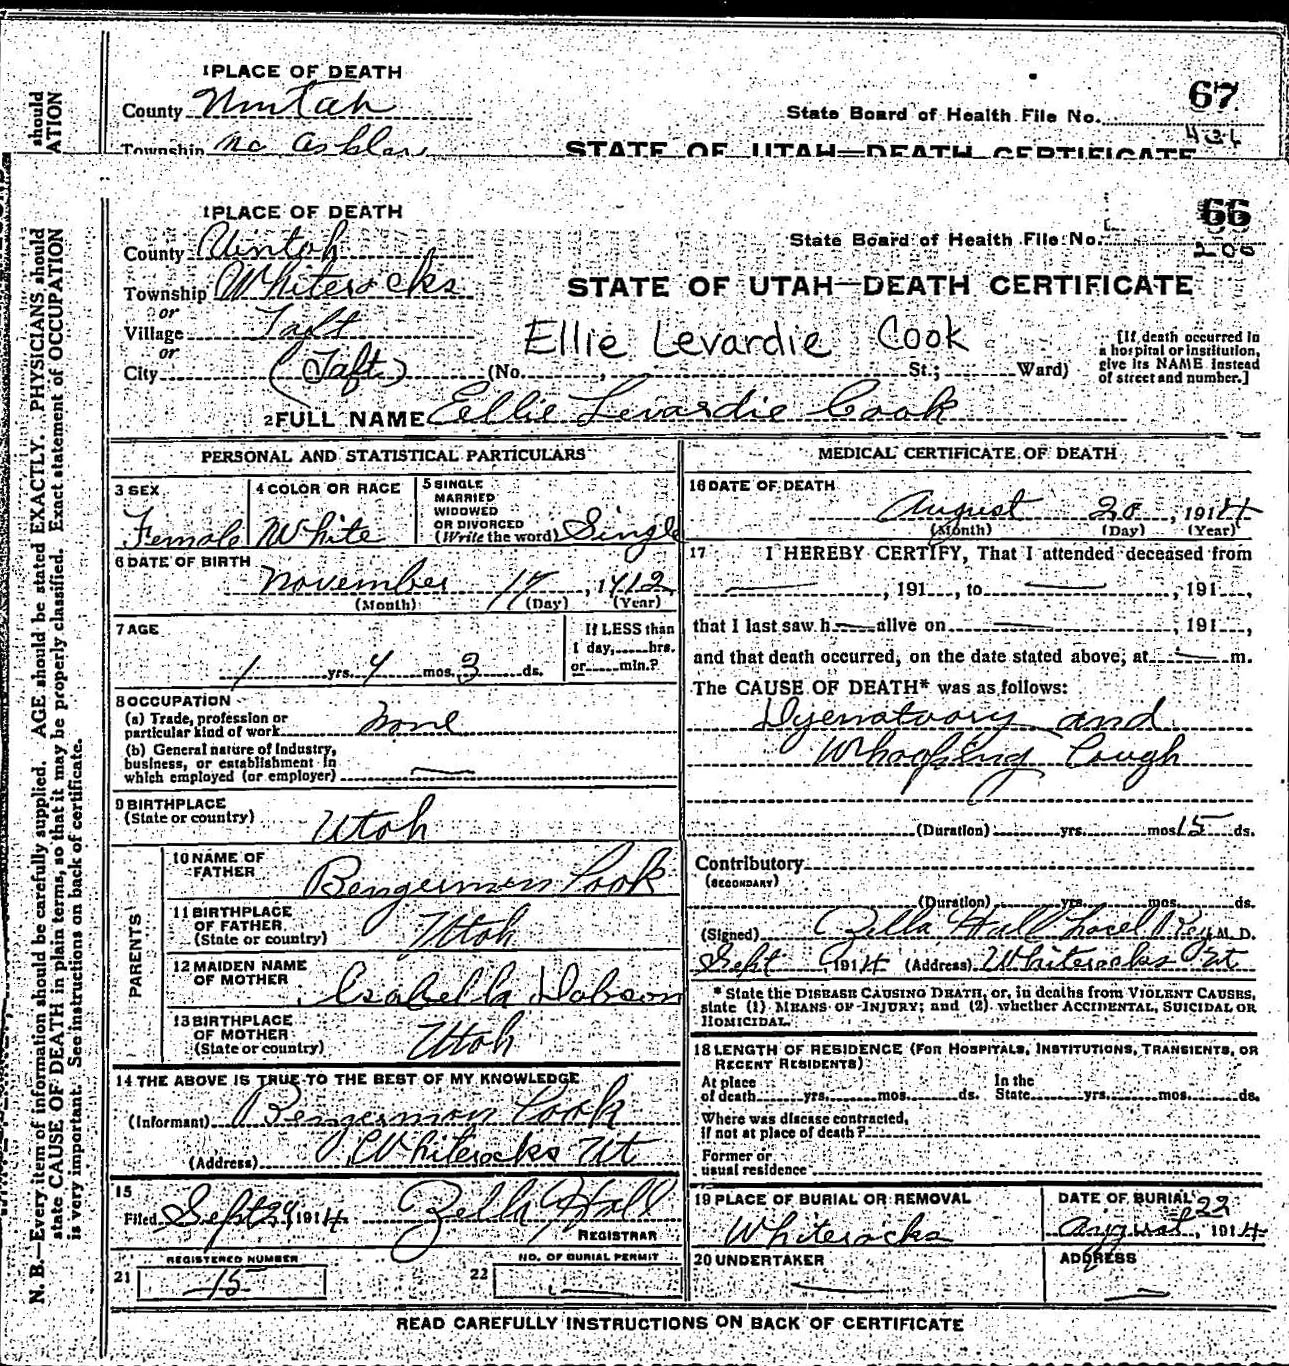 1 PLACE OF DEATH
County Uintah
State Board of Health File No. 67
Township
STATE OF UTAH—DEATH CERTIFICATE
should
ATION
1 PLACE OF DEATH
66
County Uintah
State Board of Health File No. 200
Township Whiterocks
STATE OF UTAH—DEATH CERTIFICATE
or
Village Taft
Ellie Levardie Cook
or
City (Taft) (No. , St.; Ward)
[If death occurred in
a hospital or institution,
give its NAME instead
of street and number.]
2 FULL NAME Eellie Levardie Cook
PERSONAL AND STATISTICAL PARTICULARS
3 SEX
Female
4 COLOR OR RACE
White
5 SINGLE
MARRIED
WIDOWED
OR DIVORCED
(Write the word) Single
6 DATE OF BIRTH
November 17, 1912
(Month) (Day) (Year)
7 AGE
1 yrs. 4 mos. 3 ds.
If LESS than
1 day, hrs.
or min.?
8 OCCUPATION
(a) Trade, profession or
particular kind of work None
(b) General nature of industry,
business, or establishment in
which employed (or employer)
9 BIRTHPLACE
(State or country) Utah
PARENTS
10 NAME OF
FATHER Bengermon Cook
11 BIRTHPLACE
OF FATHER
(State or country) Utah
12 MAIDEN NAME
OF MOTHER Isabella Dobson
13 BIRTHPLACE
OF MOTHER
(State or country) Utah
14 THE ABOVE IS TRUE TO THE BEST OF MY KNOWLEDGE
(Informant) Bengermon Cook
(Address) Whiterocks Ut
15
Filed Sept 29, 1914 Zella Hall
REGISTRAR
REGISTERED NUMBER
21 15
NO. OF BURIAL PERMIT
22
MEDICAL CERTIFICATE OF DEATH
16 DATE OF DEATH
August 20, 1914
(Month) (Day) (Year)
17 I HEREBY CERTIFY, That I attended deceased from
, 191 , to , 191 ,
that I last saw h alive on , 191 ,
and that death occurred, on the date stated above, at m.
The CAUSE OF DEATH* was as follows:
and
Whooping Cough
(Duration) yrs. mos. 15 ds.
Contributory
(SECONDARY)
(Duration) yrs. mos. ds.
(Signed) Zella Hall Local Reg M. D.
Sept , 1914 (Address) Whiterocks Ut
* State the DISEASE CAUSING DEATH, or, in deaths from VIOLENT CAUSES,
state (1) MEANS OF INJURY; and (2) whether ACCIDENTAL, SUICIDAL OR
HOMICIDAL.
18 LENGTH OF RESIDENCE (FOR HOSPITALS, INSTITUTIONS, TRANSIENTS, OR
RECENT RESIDENTS)
At place
of death yrs. mos. ds.
In the
State yrs. mos. ds.
Where was disease contracted,
if not at place of death?
Former or
usual residence
19 PLACE OF BURIAL OR REMOVAL
Whiterocks
DATE OF BURIAL
August 22, 1914
20 UNDERTAKER
ADDRESS
READ CAREFULLY INSTRUCTIONS ON BACK OF CERTIFICATE
N. B.—Every item of information should be carefully supplied. AGE should be stated EXACTLY. PHYSICIANS should
state CAUSE OF DEATH in plain terms, so that it may be properly classified. Exact statement of OCCUPATION
is very important. See instructions on back of certificate.